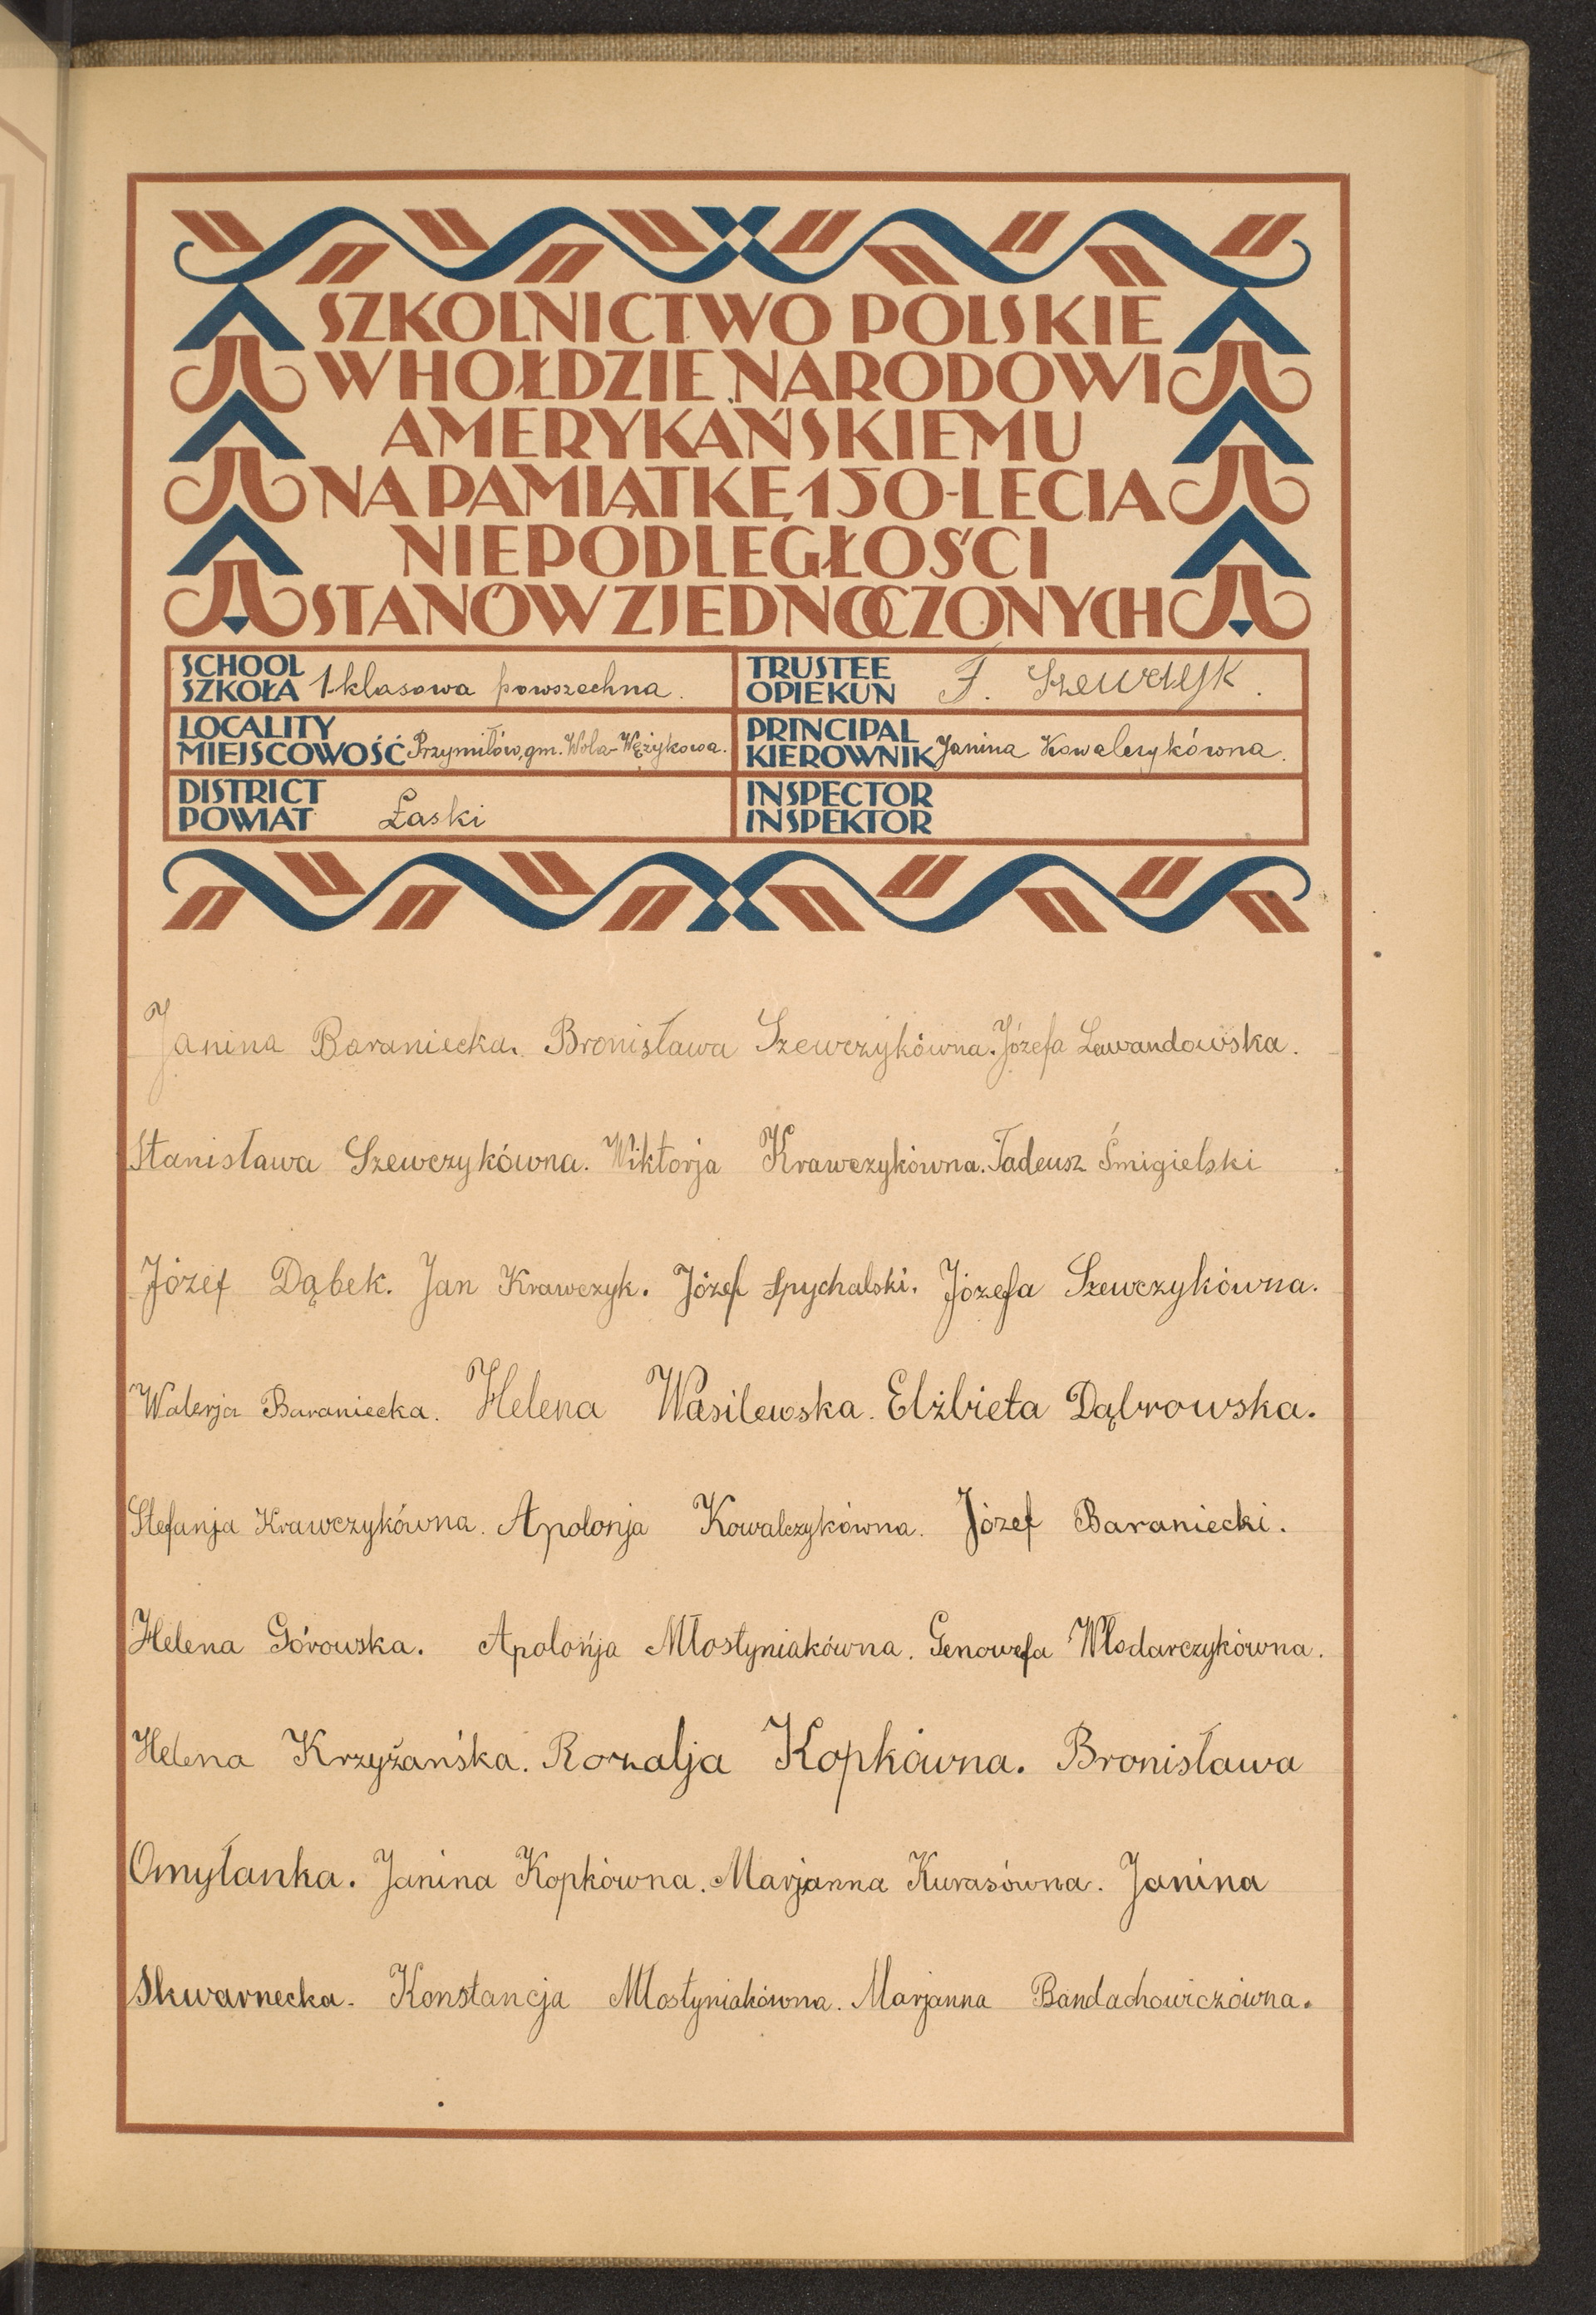 SZKOLNICTWO POLSKIE
W HOŁDZIE NARODOWI
AMERYKAŃSKIEMU
NA PAMIĄTKĘ 150-LECIA
NIEPODLEGŁOŚCI
STANÓW ZJEDNOCZONYCH
SCHOOL
SZKOŁA 1-klasowa powszechna.
TRUSTEE
OPIEKUN F. Szewczyk.
LOCALITY
MIEJSCOWOŚĆ Przymiłów, gm. Wola-Wężykowa.
PRINCIPAL
KIEROWNIK Janina Kowalczykówna.
DISTRICT
POWIAT Łaski
INSPECTOR
INSPEKTOR
Janina Baraniecka. Bronisława Szewczykówna. Józefa Lewandowska.
Stanisława Szewczykówna. Wiktorja Krawczykówna. Tadeusz Śmigielski
Józef Dąbek. Jan Krawczyk. Józef Spychalski. Józefa Szewczykówna.
Walerja Baraniecka. Helena Wasilewska. Elżbieta Dąbrowska.
Stefanja Krawczykówna. Apolonja Kowalczykówna. Józef Baraniecki.
Helena Górowska. Apolońja Młostyniakówna. Genowefa Włodarczykówna.
Helena Krzyżańska. Rozalja Kopkówna. Bronisława
Omyłanka. Janina Kopkówna. Marjanna Kurasówna. Janina
Skwarnecka. Konstancja Młostyniakówna. Marjanna Bandachowiczówna.